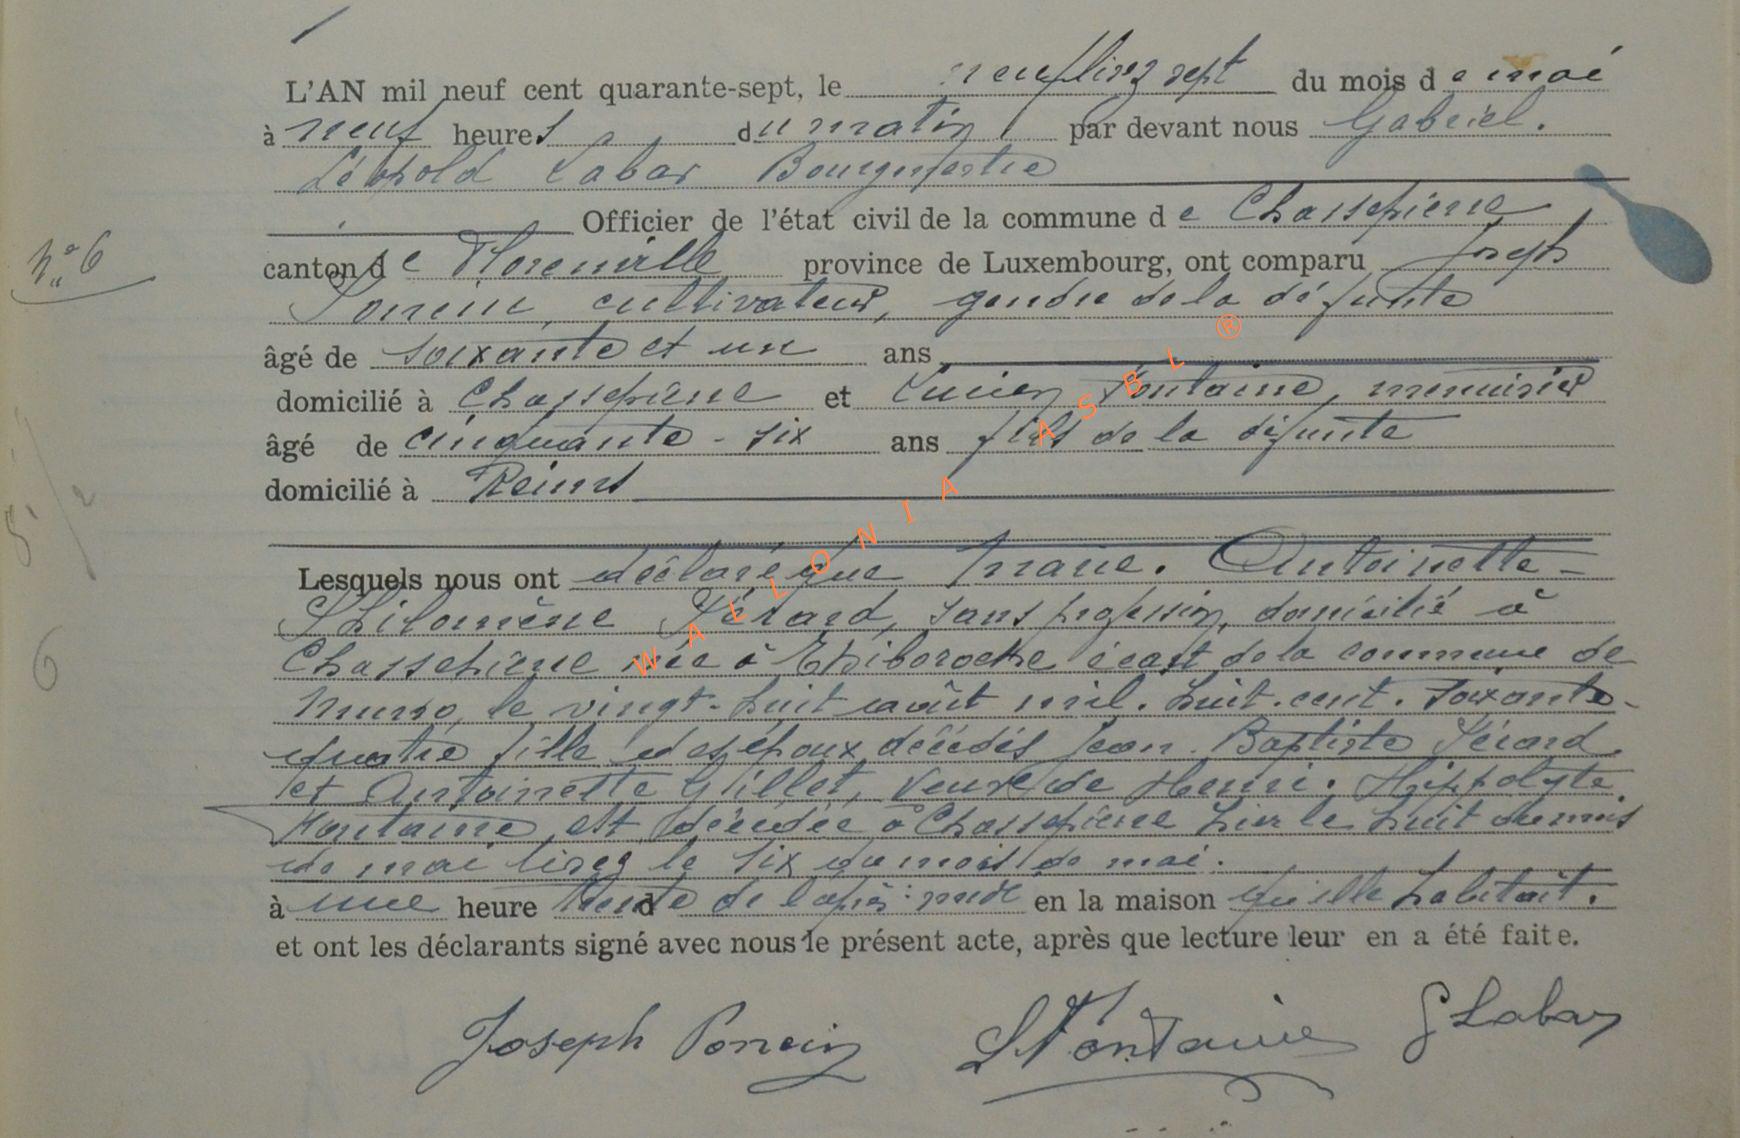 L'AN mil neuf cent quarante-sept, le neuf lisez sept du mois de mai
à neuf heures du matin par devant nous Gabriel.
Léopold Labar Bourgmestre
Officier de l'état civil de la commune de Chassepierre
N° 6
canton de Florenville province de Luxembourg, ont comparu Joseph
Poncin, cultivateur, gendre de la défunte
âgé de soixante et un ans
domicilié à Chassepierre et Lucien Fontaine, menuisier
âgé de cinquante-six ans fils de la défunte
domicilié à Reims
WALLONIA ASBL ®
Lesquels nous ont déclaré que Marie. Antoinette-
Philomène Pérard, sans profession, domicilié à
Chassepierre née à écart de la commune de
6
Musso, le vingt-huit août mil. huit. cent. soixante-
quatre fille des époux décédés Jean-Baptiste Pérard
et Antoinette Gillet, Veuve de Henri. Hippolyte
Fontaine, est décédée à Chassepierre hier le huit du mois
de mai lisez le six du mois de mai.
à une heure trente de l'après-midi en la maison qu'elle habitait.
et ont les déclarants signé avec nous le présent acte, après que lecture leur en a été faite.
Joseph Poncin L Fontaine G Labar